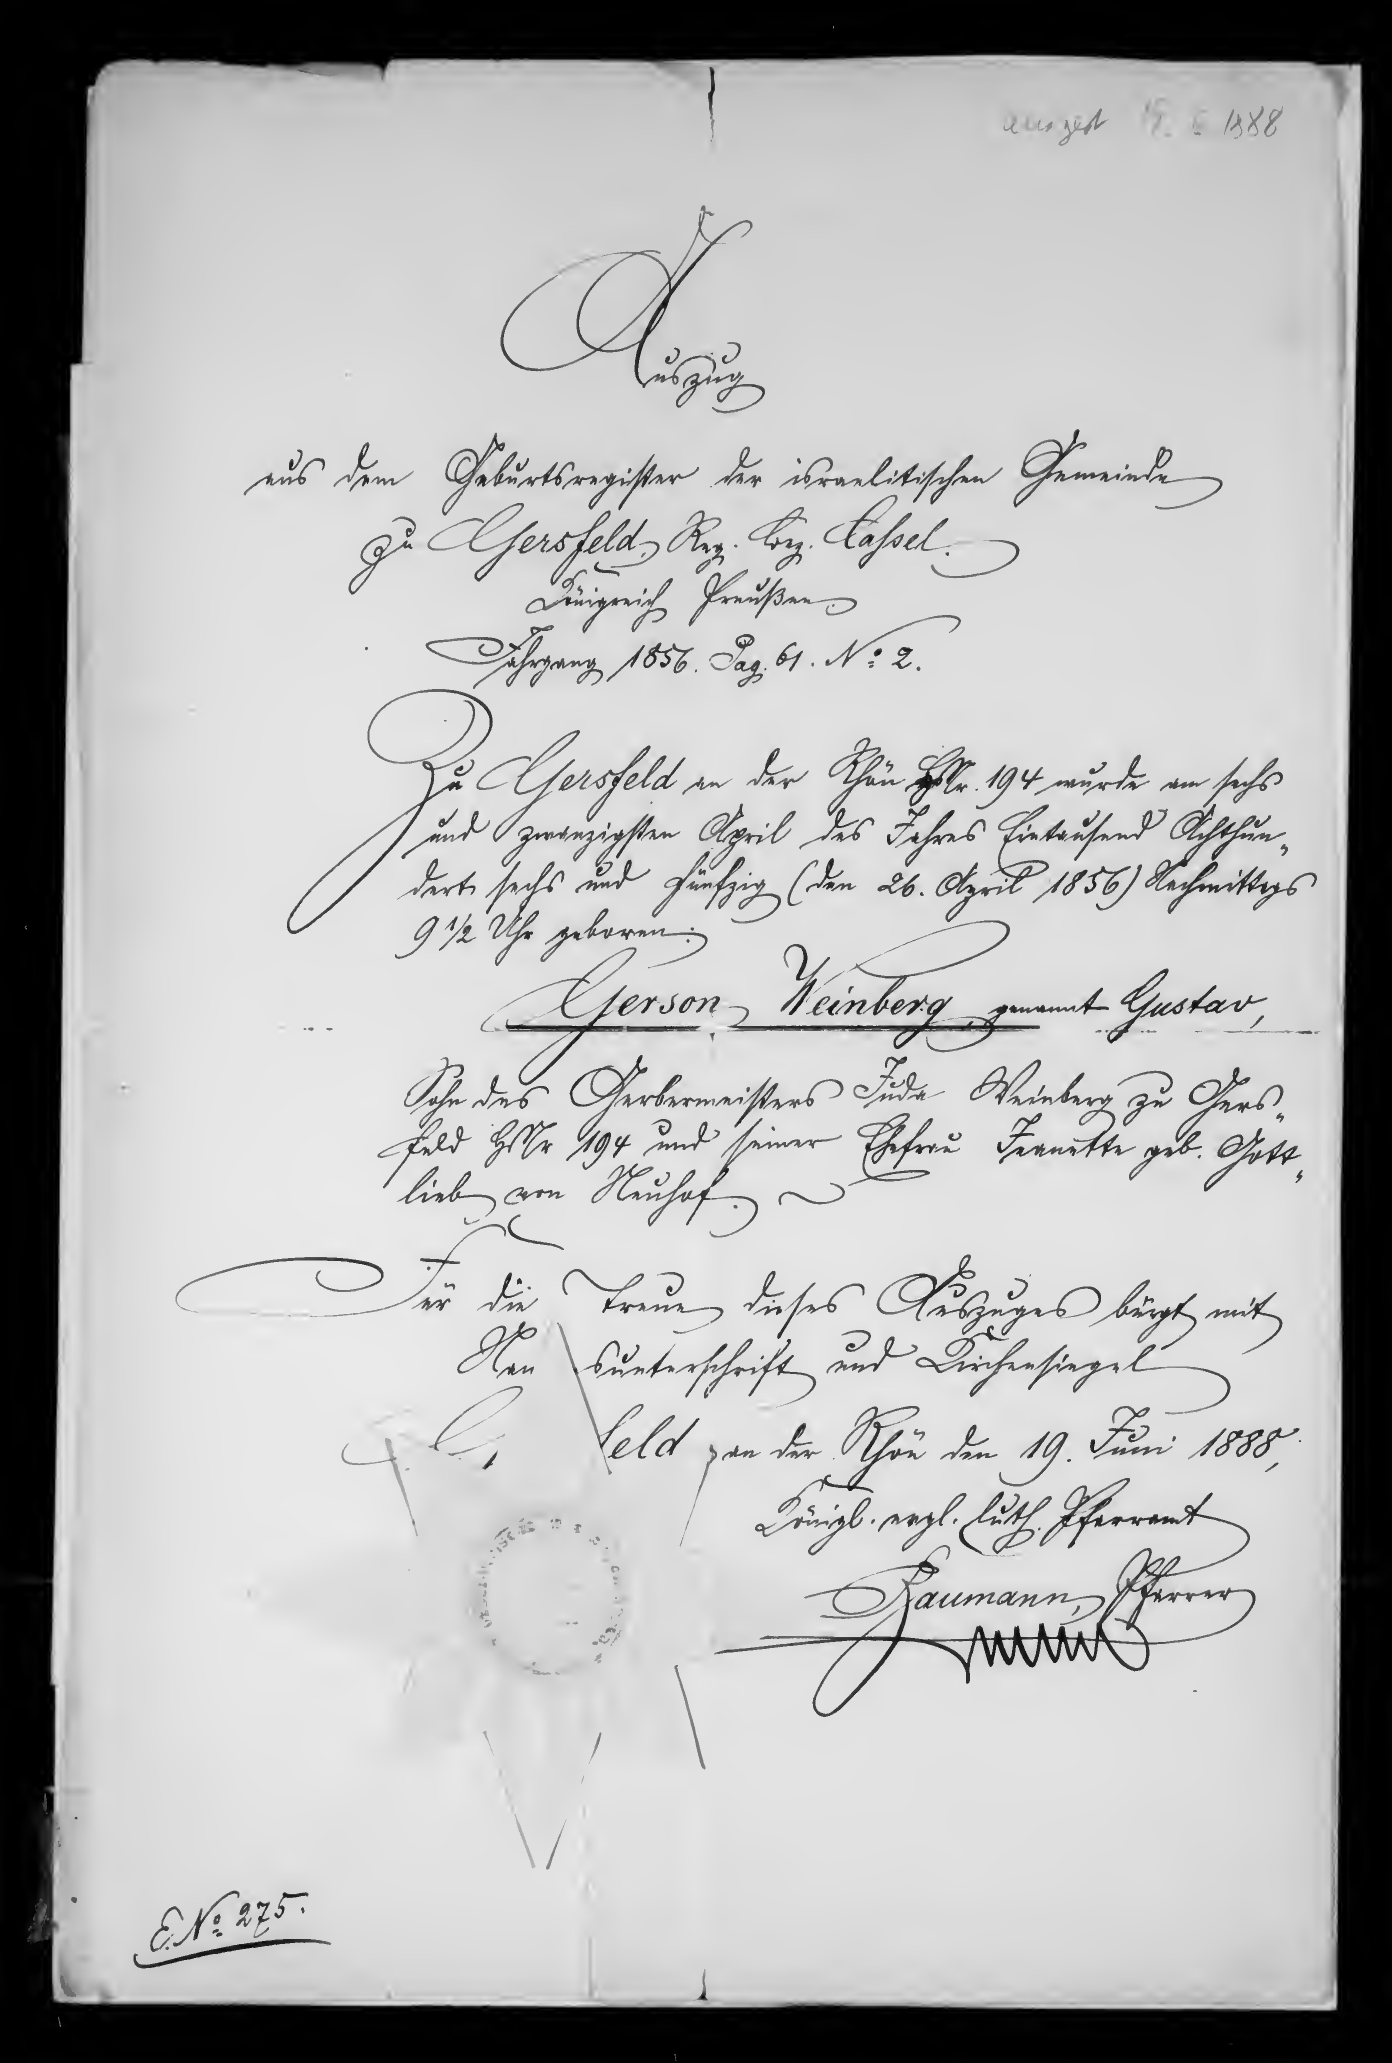 1888
Auszug
aus dem Geburtsregister der israelitischen Gemeinde
zu Gersfeld, Reg. Bez. Cassel.
Königreich Preußen.
Jahrgang 1856. Pag. 61. No. 2.
Zu Gersfeld an der Rhön HsNr. 194 wurde am sechs
und zwanzigsten April des Jahres Eintausend Achthun„
dert sechs und fünfzig (den 26. April 1856) Nachmittags
9 1/2 Uhr geboren:
Gerson Weinberg, genannt Gustav,
Sohn des Gerbermeisters Juda Weinberg zu Gers„
feld HsNr 194 und seiner Ehefrau Jeanette geb. Gott„
lieb von Neuhof.
Für die Treue dieses Auszuges bürgt mit
Nam sunterschrift und Kirchensiegel
G feld an der Rhön den 19. Juni 1888,
Königl. evgl. luth. Pfarramt
Baumann, Pfarrer
E. No. 275.